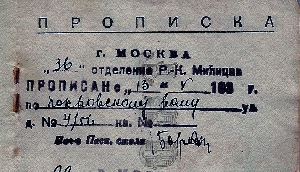 ПРОПИСКА
г. МОСКВА
„36“ отделение Р.-К. Милиции
ПРОПИСАНО „13“ V 193 г.
по Покровскому валу ул
д. № 4/51 кв. №